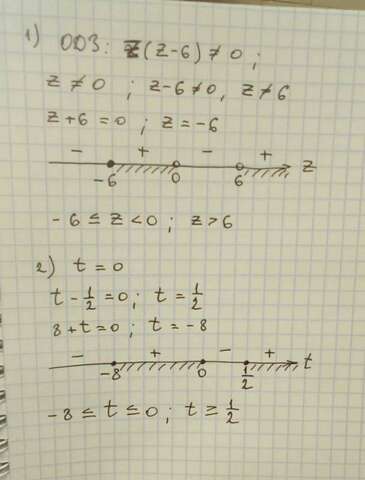 1) ОДЗ: z(z-6) ≠ 0 ;
z ≠ 0 ; z-6 ≠ 0, z ≠ 6
z+6 = 0 ; z = -6
- + - +
-6 0 6 z
-6 ≤ z < 0 ; z > 6
2) t = 0
t - 1/2 = 0 ; t = 1/2
8 + t = 0 ; t = -8
- + - +
-8 0 1/2 t
-8 ≤ t ≤ 0 ; t ≥ 1/2